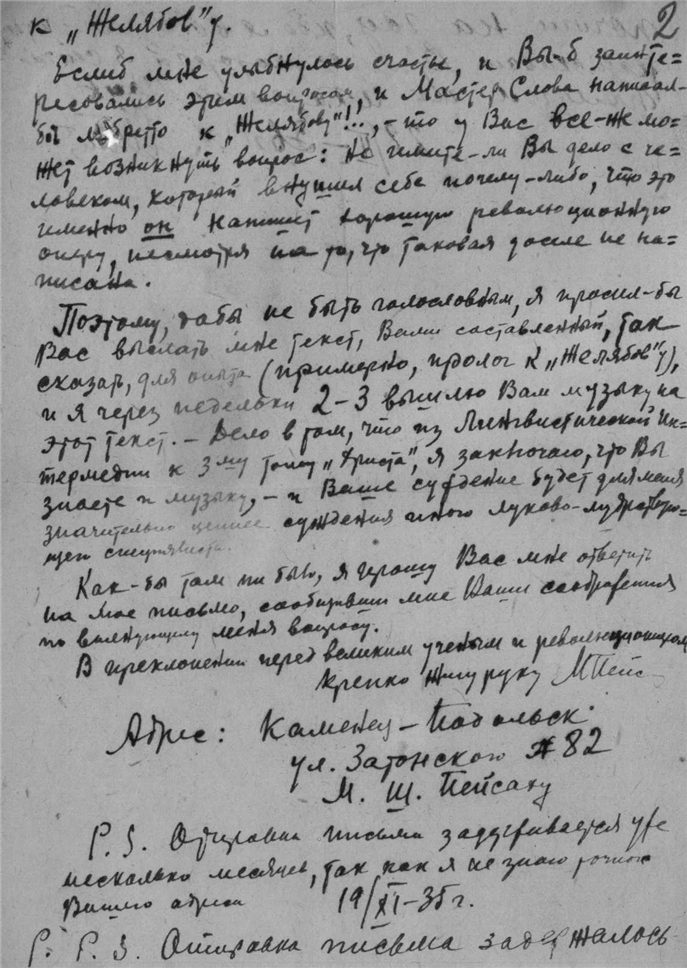 2
к „Желябов"у.
Еслиб мне улыбнулось счастье, и Вы-б заинте=
ресовались этим вопросом, и Мастер Слова написал-
бы либретто к „Желябову"!.., – то у Вас все-же мо=
жет возникнуть вопрос: не имеете-ли Вы дело с че=
ловеком, который внушил себе почему-либо, что это
именно он напишет хорошую революционную
оперу, несмотря на то, что таковая доселе не на=
писана.
Поэтому, дабы не быть голословным, я просил-бы
Вас выслать мне текст, Вами составленный, так
сказать, для опыта (примерно, пролог к „Желябов"у),
и я через недельки 2-3 вышлю Вам музыку на
этот текст. – Дело в том, что из Лингвистической Ин=
термедии к 3му тому „Христа", я заключаю, что Вы
знаете и музыку, – и Ваше суждение будет для меня
значительно ценнее суждения иного лукаво-мудрствую=
щего специалиста.
Как-бы там ни было, я прошу Вас мне ответить
на мое письмо, сообщивши мне Ваши соображения
по волнующему меня вопросу.
В преклонении перед великим ученым и революционером
Крепко жму руку МПейс
Адрес: Каменец-Подольск
ул. Затонского 82
М. Ш. Пейсаху
P. S. Отправка письма задерживается уже
несколько месяцев, так как я не знаю точного
Вашего адреса 19/XI-35 г.
P. P. S. Отправка письма задержалось